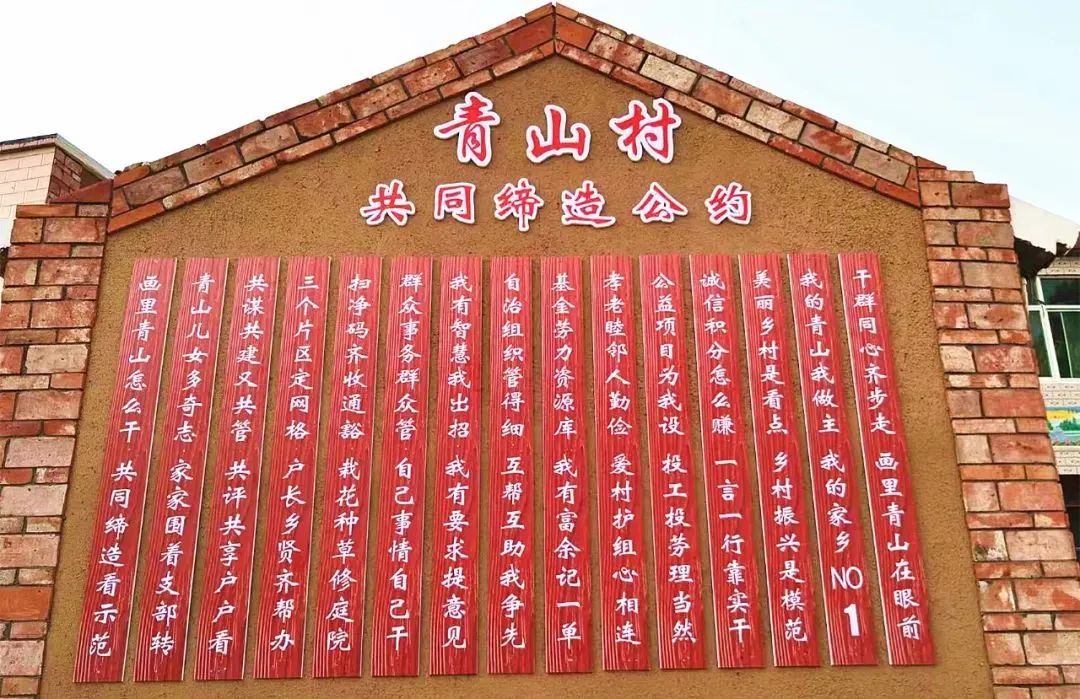 青山村
共同缔造公约
画里青山怎么干 共同缔造看示范
青山儿女多奇志 家家围着支部转
共谋共建又共管 共评共享户户看
三个片区定网格 户长乡贤齐帮办
扫净码齐收通豁 栽花种草修庭院
群众事务群众管 自己事情自己干
我有智慧我出招 我有要求提意见
自治组织管得细 互帮互助我争先
基金劳力资源库 我有富余记一单
孝老睦邻人勤俭 爱村护组心相连
公益项目为我设 投工投劳理当然
诚信积分怎么赚 一言一行靠实干
美丽乡村是看点 乡村振兴是模范
我的青山我做主 我的家乡NO1
干群同心齐步走 画里青山在眼前